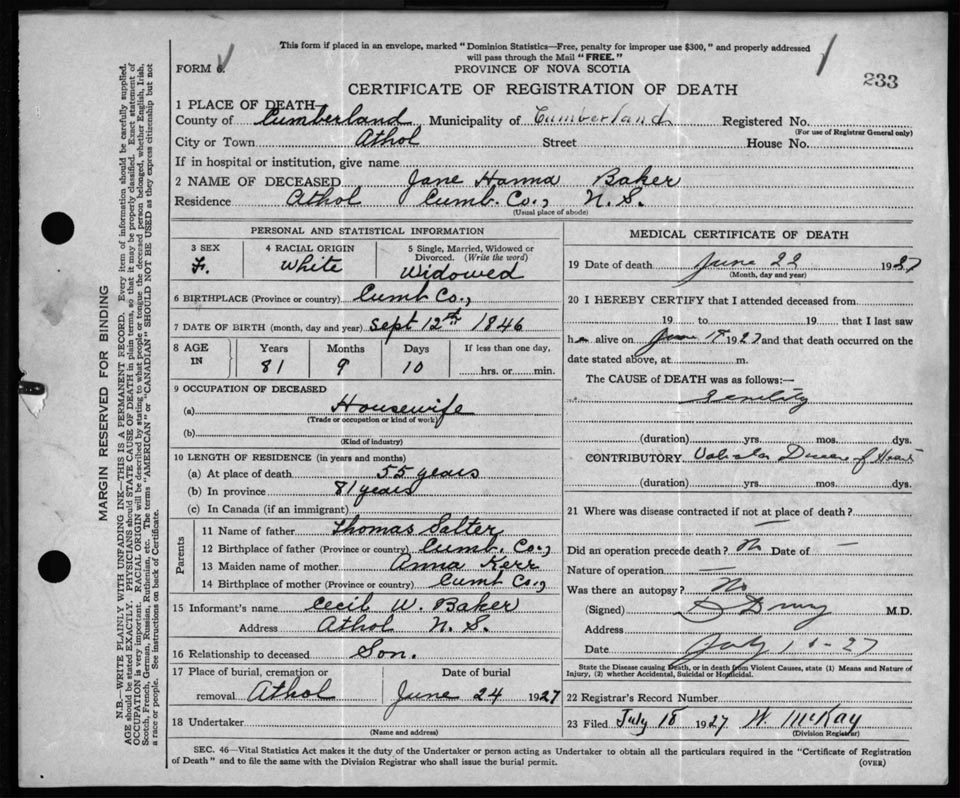 This form if placed in an envelope, marked "Dominion Statistics—Free, penalty for improper use $300," and properly addressed
will pass through the Mail "FREE."
FORM 6.
PROVINCE OF NOVA SCOTIA
233
CERTIFICATE OF REGISTRATION OF DEATH
1 PLACE OF DEATH—
County of Cumberland Municipality of Cumberland Registered No.
(For use of Registrar General only)
City or Town Athol Street House No.
If in hospital or institution, give name
2 NAME OF DECEASED Jane Hanna Baker
Residence Athol Cumb. Co., N.S.
(Usual place of abode)
PERSONAL AND STATISTICAL INFORMATION
3 SEX 4 RACIAL ORIGIN 5 Single, Married, Widowed or
Divorced. (Write the word)
F. White Widowed
6 BIRTHPLACE (Province or country) Cumb Co.,
7 DATE OF BIRTH (month, day and year) Sept 12th 1846
8 AGE IN Years Months Days If less than one day,
81 9 10 hrs. or min.
9 OCCUPATION OF DECEASED
(a) Housewife
(Trade or occupation or kind of work)
(b)
(Kind of industry)
10 LENGTH OF RESIDENCE (in years and months)
(a) At place of death 55 years
(b) In province 81 years
(c) In Canada (if an immigrant)
Parents
11 Name of father Thomas Salter
12 Birthplace of father (Province or country) Cumb. Co.,
13 Maiden name of mother Anna Kerr
14 Birthplace of mother (Province or country) Cumb Co.,
15 Informant's name Cecil W. Baker
Address Athol N.S.
16 Relationship to deceased Son.
17 Place of burial, cremation or Date of burial
removal Athol June 24 1927
18 Undertaker
(Name and address)
MEDICAL CERTIFICATE OF DEATH
19 Date of death June 22 1927
(Month, day and year)
20 I HEREBY CERTIFY that I attended deceased from
19 to 19 that I last saw
h alive on June 1927 and that death occurred on the
date stated above, at m.
The CAUSE of DEATH was as follows:—
Senility
(duration) yrs. mos. dys.
CONTRIBUTORY Valvular Disease of Heart
(duration) yrs. mos. dys.
21 Where was disease contracted if not at place of death? —
Did an operation precede death? No Date of —
Nature of operation —
Was there an autopsy? No
(Signed) M.D.
Address
Date July 27
State the Disease causing Death, or in death from Violent Causes, state (1) Means and Nature of
Injury, (2) whether Accidental, Suicidal or Homicidal.
22 Registrar's Record Number
23 Filed July 18 1927 W. McKay
(Division Registrar)
SEC. 46—Vital Statistics Act makes it the duty of the Undertaker or person acting as Undertaker to obtain all the particulars required in the "Certificate of Registration
of Death" and to file the same with the Division Registrar who shall issue the burial permit.
(OVER)
MARGIN RESERVED FOR BINDING
N.B.—WRITE PLAINLY WITH UNFADING INK—THIS IS A PERMANENT RECORD. Every item of information should be carefully supplied.
AGE should be stated EXACTLY. PHYSICIANS should STATE CAUSE OF DEATH in plain terms, so that it may be properly classified. Exact statement of
OCCUPATION is very important. RACIAL ORIGIN will be described by stating to what people or tongue the deceased person belonged, whether English, Irish,
Scotch, French, German, Russian, Ruthenian, etc. The terms "AMERICAN" or "CANADIAN" SHOULD NOT BE USED as they express citizenship but not
a race or people. See instructions on back of Certificate.